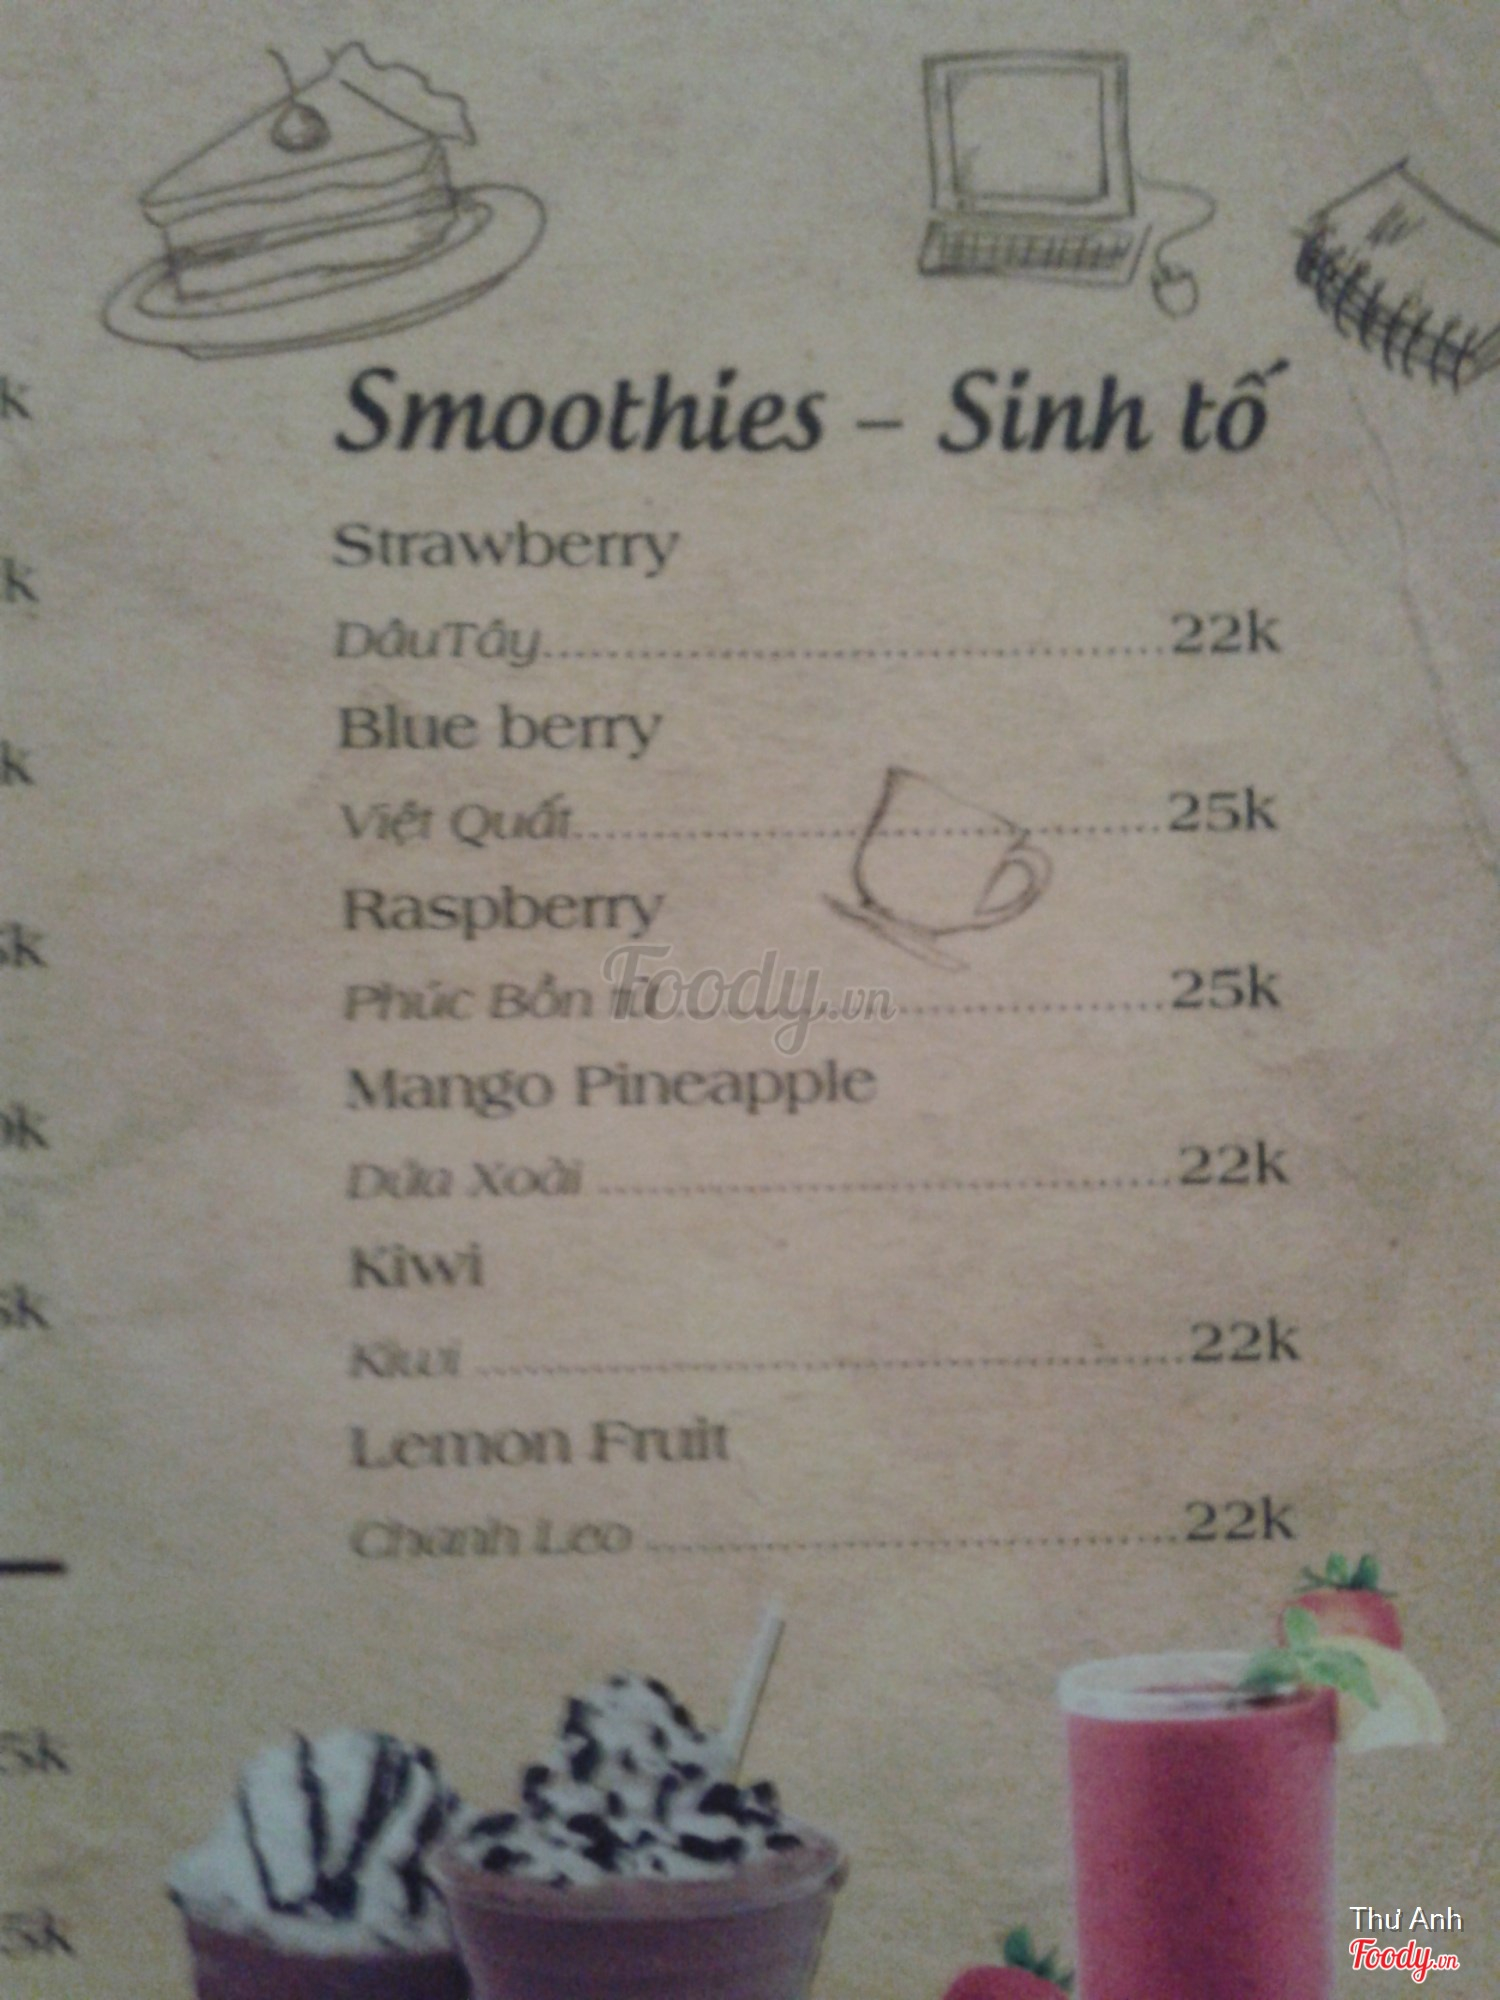 Smoothies – Sinh tố
Strawberry
DâuTây........................................22k
Blue berry
Việt Quất........................................25k
Raspberry
Phúc Bồn tử........................................25k
Mango Pineapple
Dứa Xoài ........................................22k
Kiwi
Kiwi ........................................22k
Lemon Fruit
Chanh Leo ........................................22k
Foody.vn
Thư Anh
Foody.vn